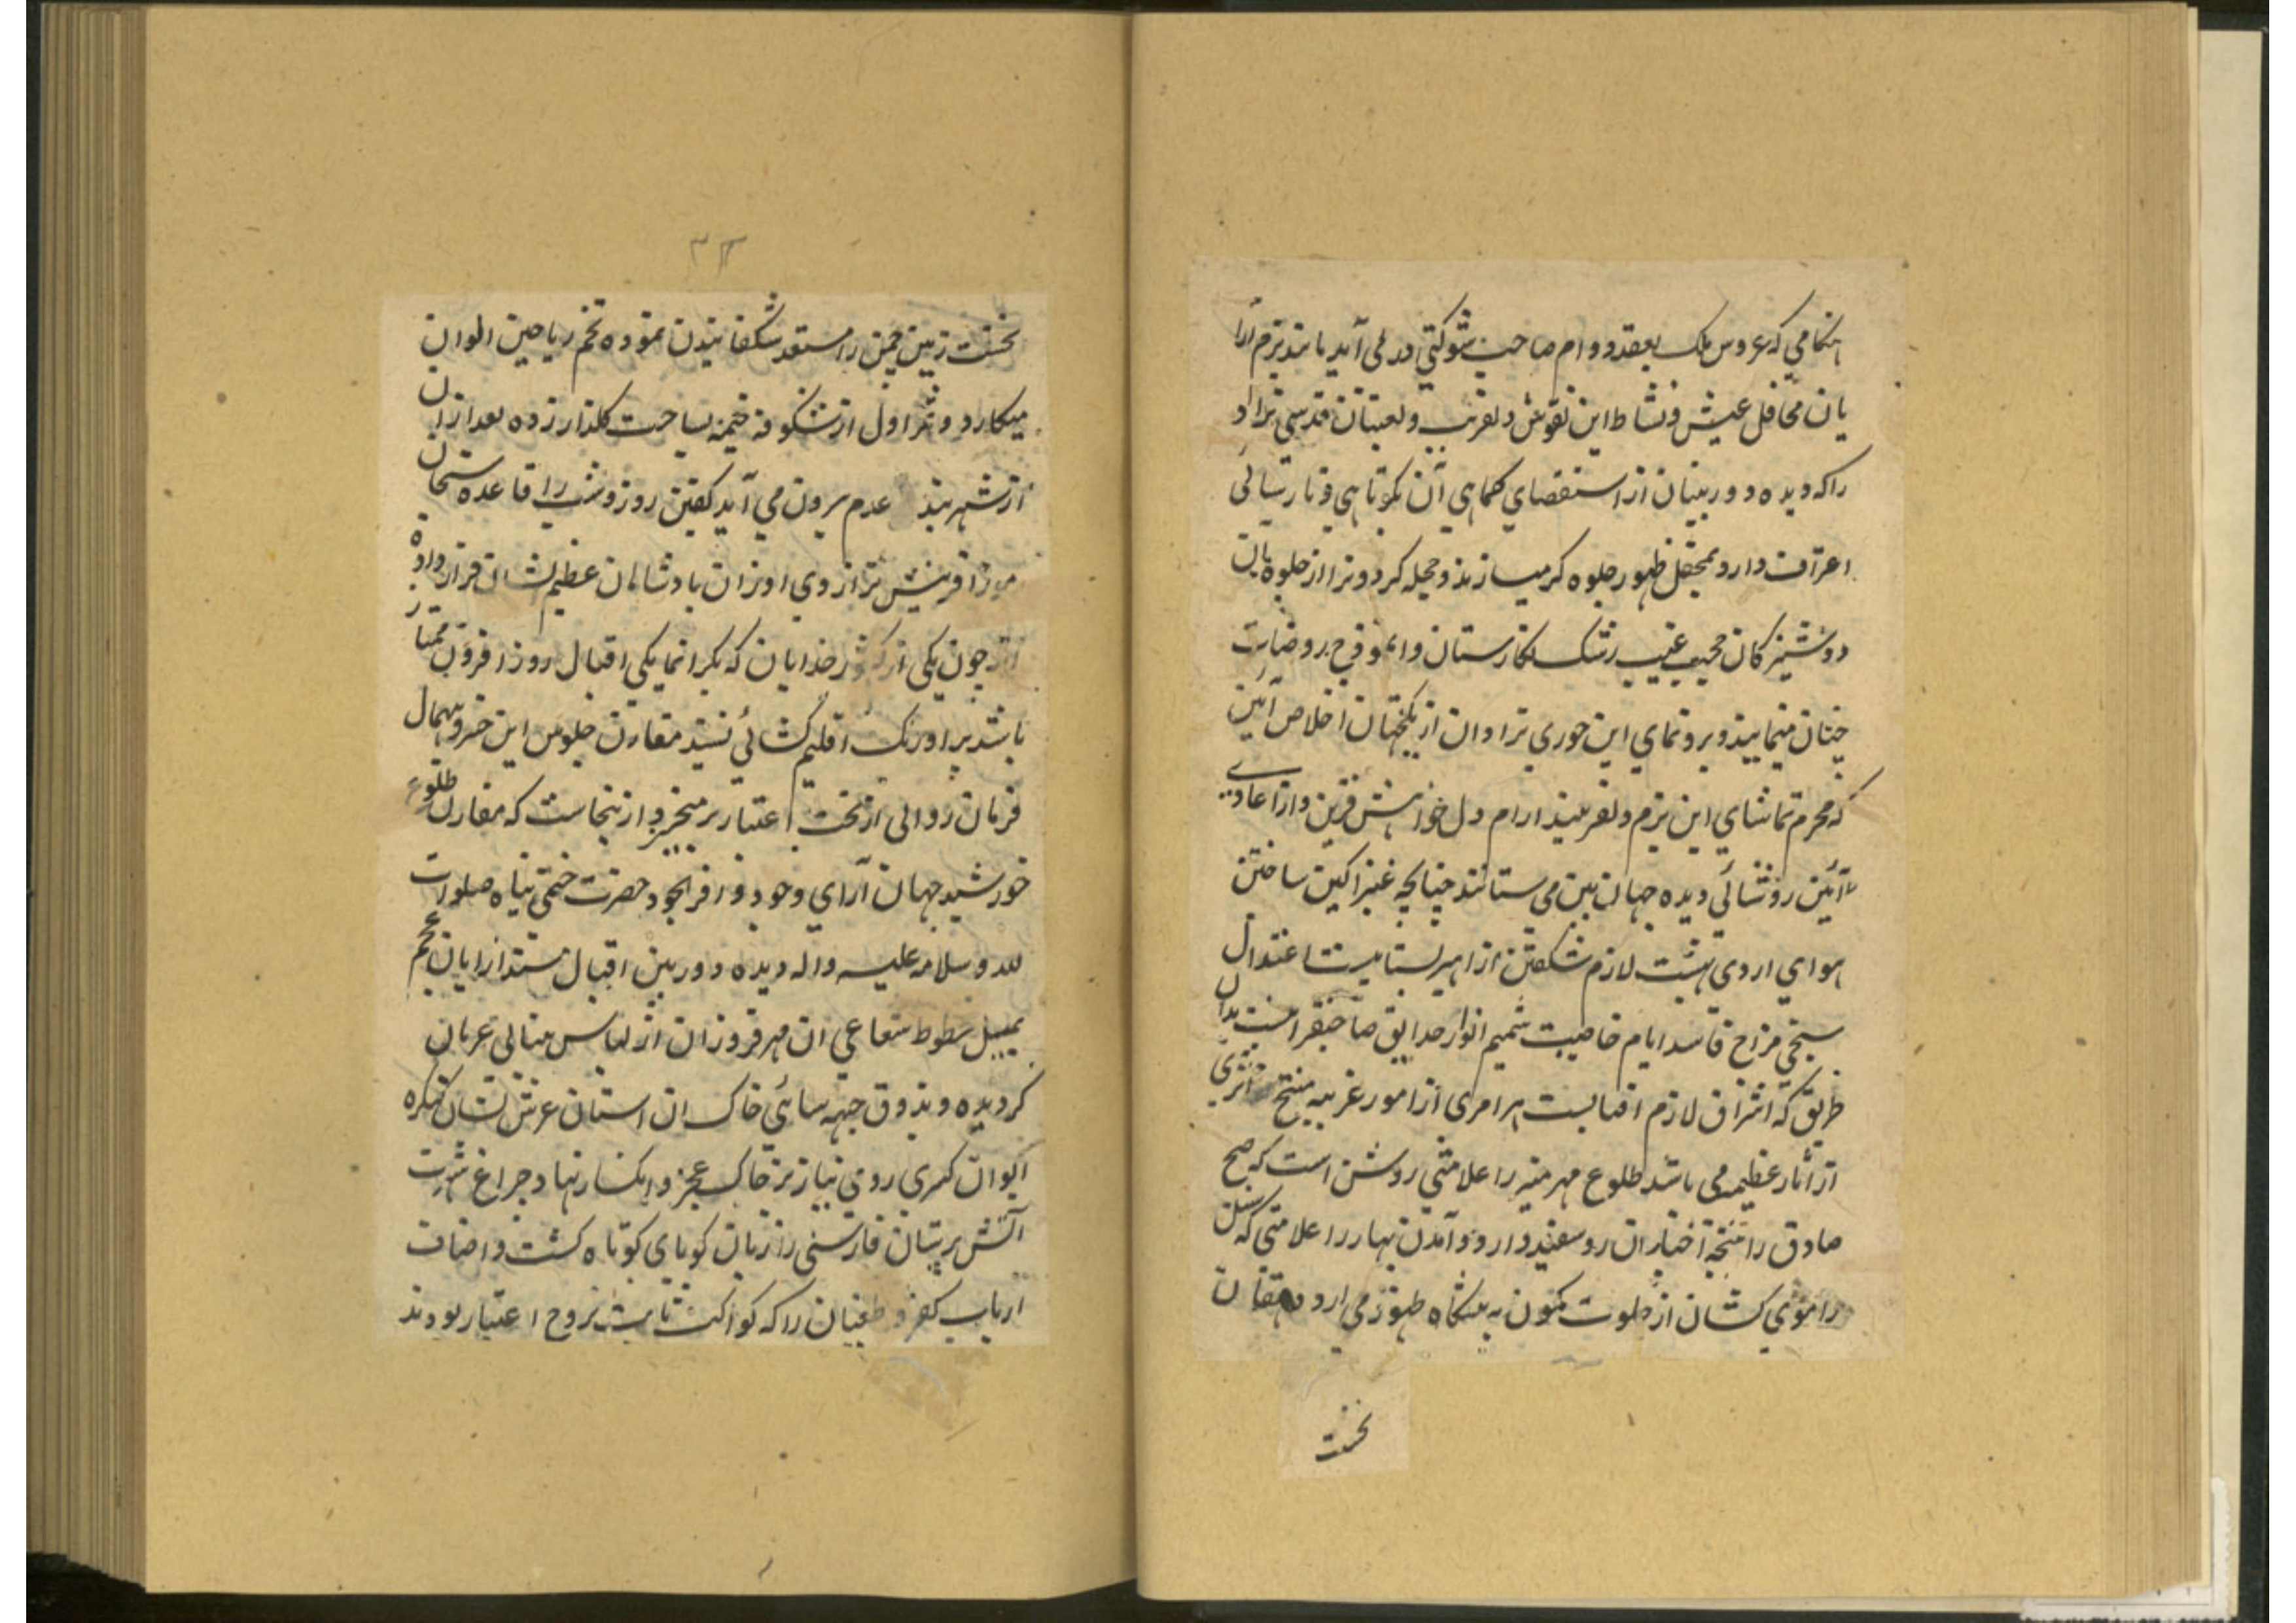 هنگامی که عروس ملک بعقد دوام صاحب شوکتی در می آید باید بزم آرا
یان محافل عیش و نشاط این نقوش دلفریب و لعبتان قدسی نژاد
را که دیده دوربینان از استقصای کماهی آن بکوتاهی و نارسائی
اعتراف دارد بمحفل ظهور جلوه گر میسازند و حجله کردون را از جلوه یان
دوشیزکان غیب رشک نکارستان و انموذج روضات
چنان مینمایند و برونمای این حوری نژادان از نیکبختان اخلاص آئین
که محرم تماشای این بزم دلفریبند ارام دل خواهش قرین و از اعادی
آئین روشنائی دیده جهان بین می ستانند چنانچه عنبر اکین ساختن
هوای اردی بهشت لازم شکفتن ازاهیر بساتین است اعتدال
سنجی مزاج فاسد ایام خاصیت شمیم انوار حدایق صاحبقرانیست بدان
طریق که اشراق لازم افتابست هر امری از امور غریبه منتج اثری
از آثار عظیمه می باشد طلوع مهر منیر را علامتی روشن است که صبح
صادق را نتیجه اختیار ان رو سفید دارد و آمدن بهار را علامتی که سنبل
را موی کشان از خلوت کمون به پیشگاه ظهور می ارد دهقان
نخست
۳۳
نخست زمین چمن را مستعد شکفانیدن نموده تخم ریاحین الوان
میکارد و ثمر اول از شکوفه خیمه بساحت کلزار زده بعد ازان
از شهر بند عدم بیرون می آید کفتین روز و شب را قاعده سنجان
موز افرینش ترازوی اوزان پادشاهان عظیم الشان قرار داده
اند چون یکی از کشور خدایان که بکرانمایکی اقبال روز افزون ممتاز
باشد بر اورنک اقلیم کشائی نشیند مقارن جلوس این خسرو بیهمال
فرمان روالی از تخت اعتبار بر میخیزد از ینجاست که مقارن طلوع
خورشید جهان آرای وجود وافر الجود حضرت ختمی پناه صلوات
لله و سلامه علیه واله دیده دوربین اقبال مسند ارایان عجم
بمیل خطوط شعاعی ان مهر فروزان از لباس بینائی عریان
کردیده و بذوق جبهه سائی خاک ان استان عرش نشان کنکره
ایوان کسری روی نیاز بر خاک عجز و انکسار نهاد چراغ شهرت
آتش پرستان فارسی را زبان کویای کوتاه کشت و اصناف
ارباب کفر و طغیان را که کواکب ثابت بروج اعتبار بودند